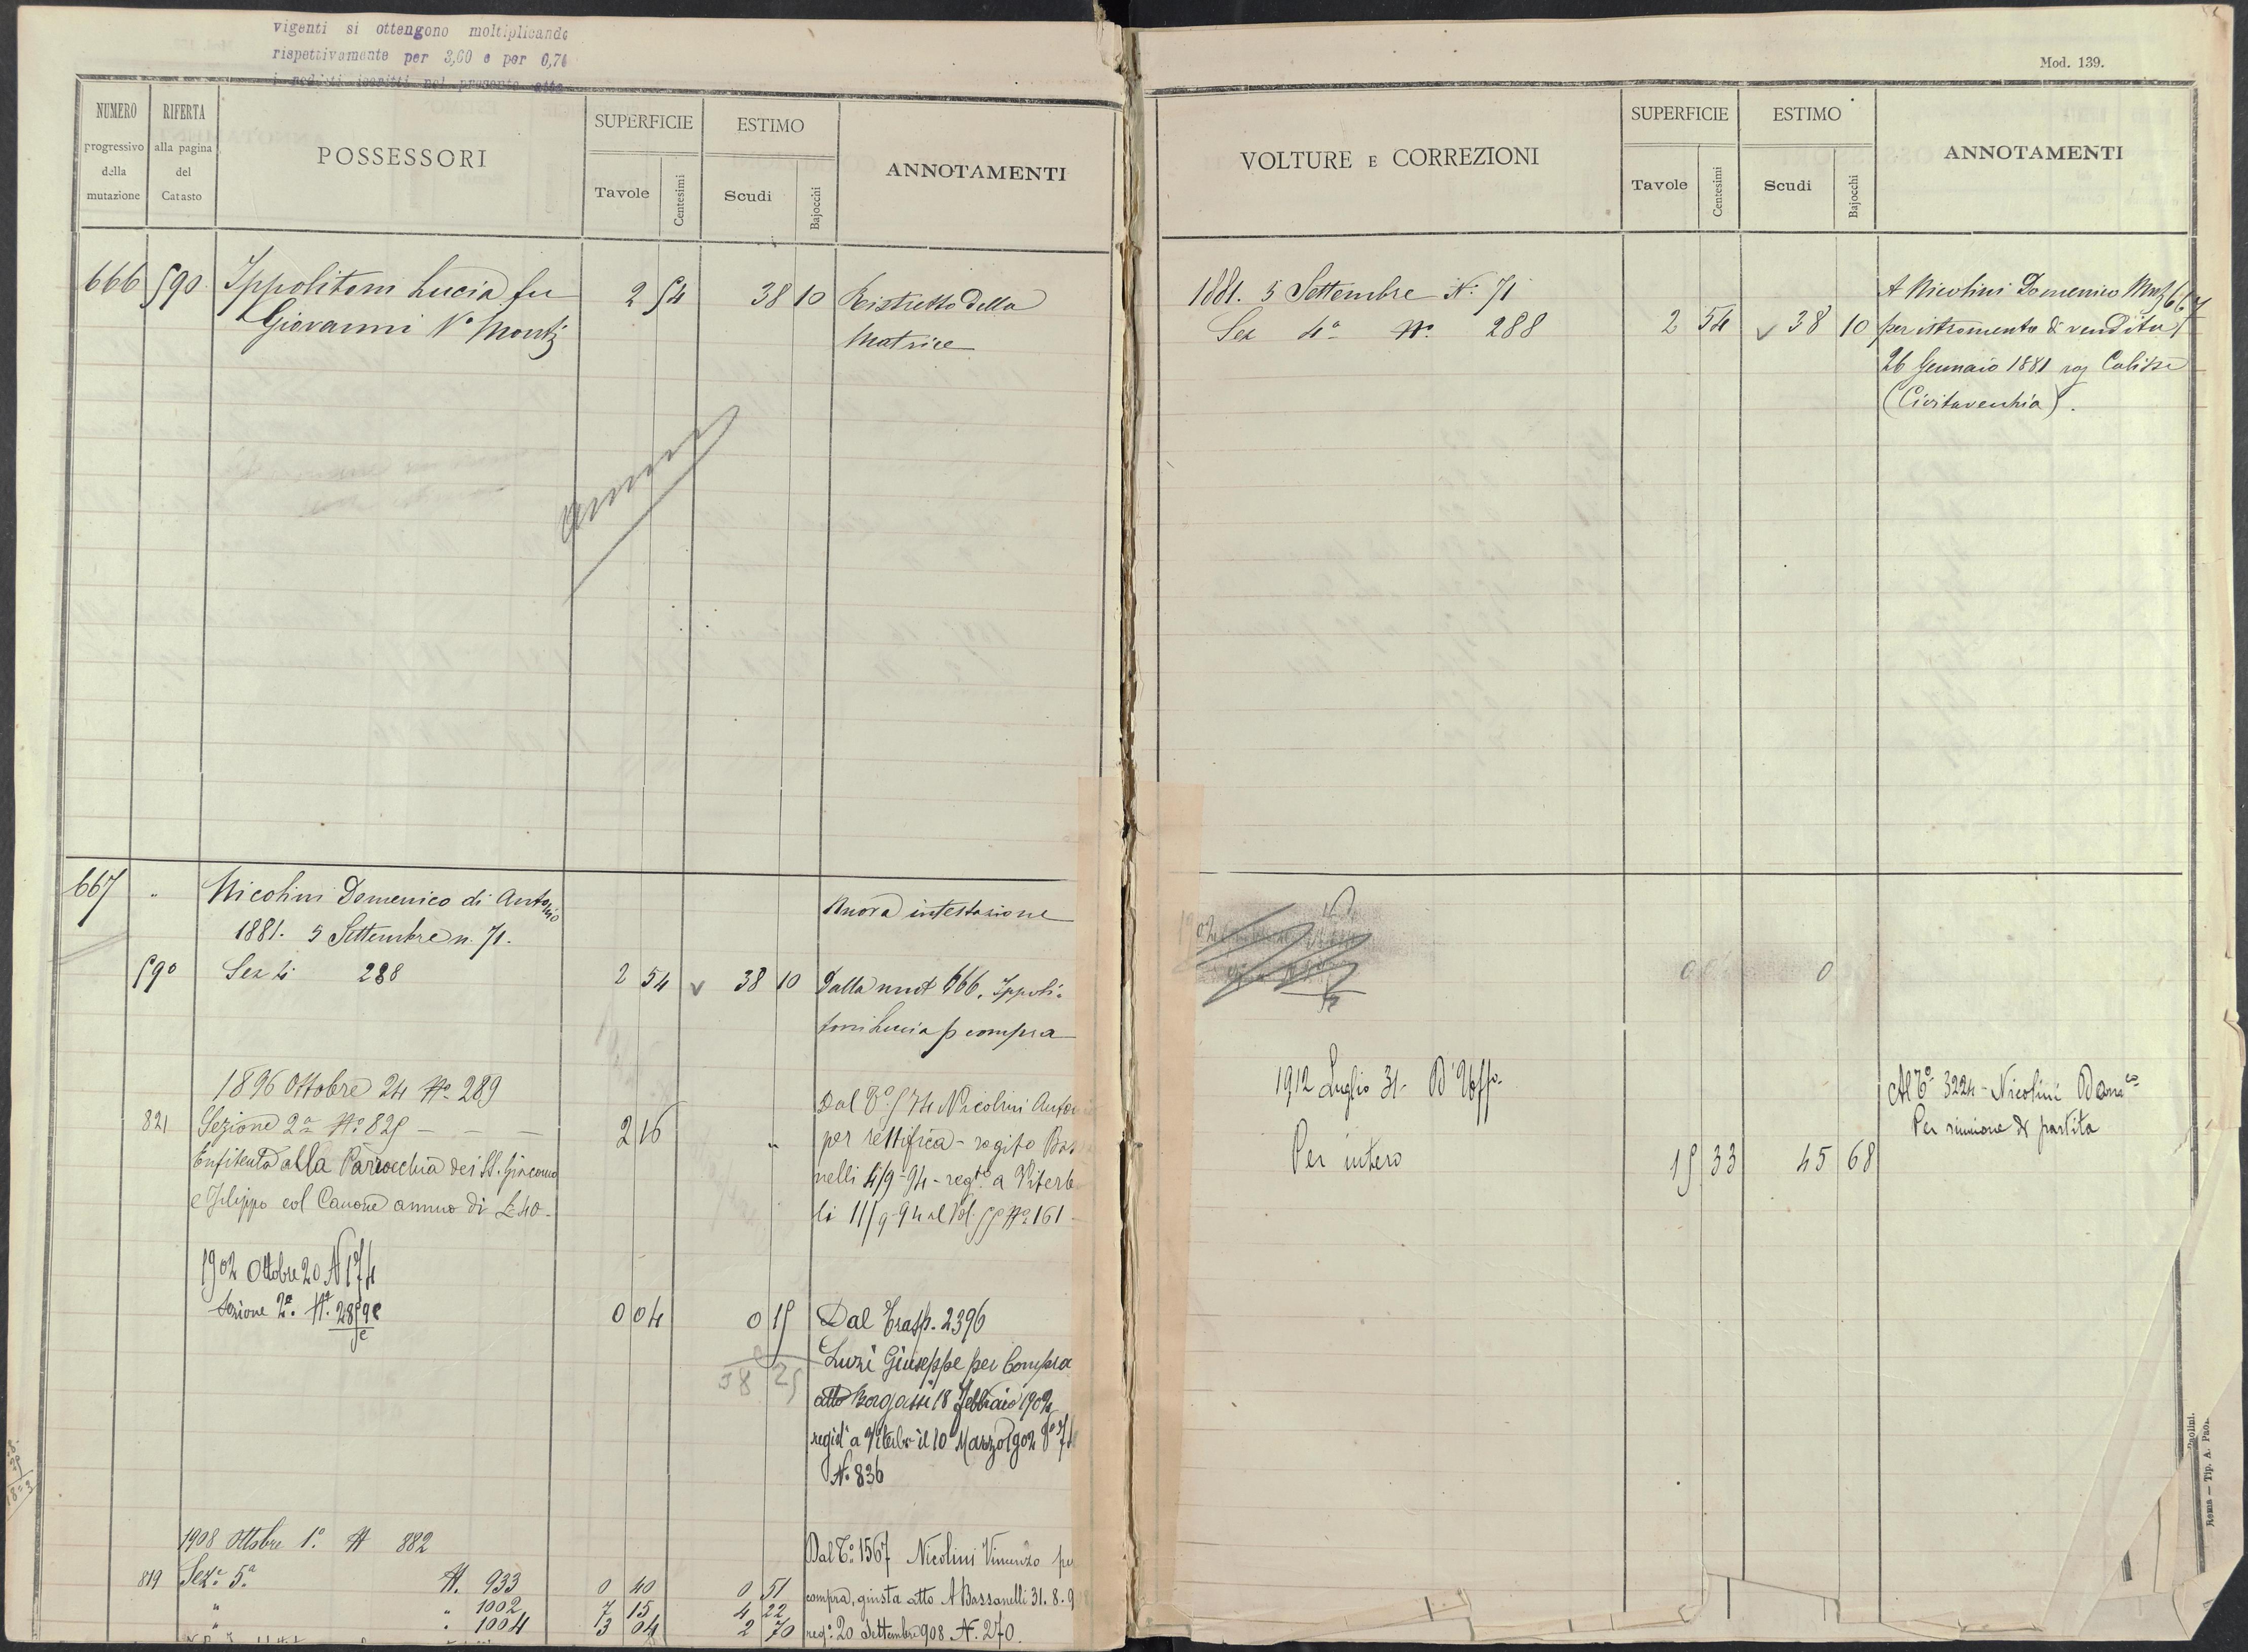 vigenti si ottengono moltiplicando
rispettivamente per 3,60 e per 0,74
i redditi iscritti nel presente atto
NUMERO progressivo della mutazione
RIFERTA alla pagina del Catasto
POSSESSORI
SUPERFICIE
Tavole Centesimi
ESTIMO
Scudi Bajocchi
ANNOTAMENTI
666 590 Ippolitoni Lucia fu 2 54 38 10 Ristretto della
Giovanni Va Monti Matrice
667 " Nicolini Domenico di Antonio Nuova intestazione
1881. 5 Settembre n. 71.
590 Sez 4 288 2 54 v 38 10 Dalla mut 666. Ippoli-
toni Lucia p compra
1896 Ottobre 24 No. 289
821 Sezione 2a No. 825 - - - 2 16 " Dal 574 Nicolini Anton
Enfiteuta alla Parrocchia dei SS. Giacomo per rettifica - rogito
e Filippo col Canone annuo di L 40 - nelli 4/9-94 - regto a Viterb
li 11/9-94 al Vol. 55 No. 161
1902 Ottobre 20 N 174
Sezione 2a. N. 2859 0 04 0 15 Dal Trasp. 2396
38 25 Luzi Giuseppe per Compra
atto Borgassi 18 Febbraio 1902
regis a Viterbo il 10 Marzo 1902
No 836
1908 Ottobre 1o. N 882 Dal To. 1567 Nicolini Vincenzo pe
819 Seza. 5a. N. 933 0 40 0 51 compra, giusta atto A Bassanelli 31.8.9
" " 1002 7 15 4 22
" " 1004 3 04 2 70 rego. 20 Settembre 908 N. 270.
Mod. 139.
VOLTURE E CORREZIONI
SUPERFICIE
Tavole Centesimi
ESTIMO
Scudi Bajocchi
ANNOTAMENTI
1881. 5 Settembre N. 71 A Nicolini Domenico Mut 667
Sez 4a N. 288 2 54 v 38 10 per istromento di vendita
26 Gennaio 1881 rog Calisse
(Civitavecchia).
1902
0 0
1912 Luglio 31 - D'Uffo. Al To 3224 - Nicolini Domco
Per riunione di partita
Per intero 15 33 45 68
Paolini.
Roma — Tip. A. Pao